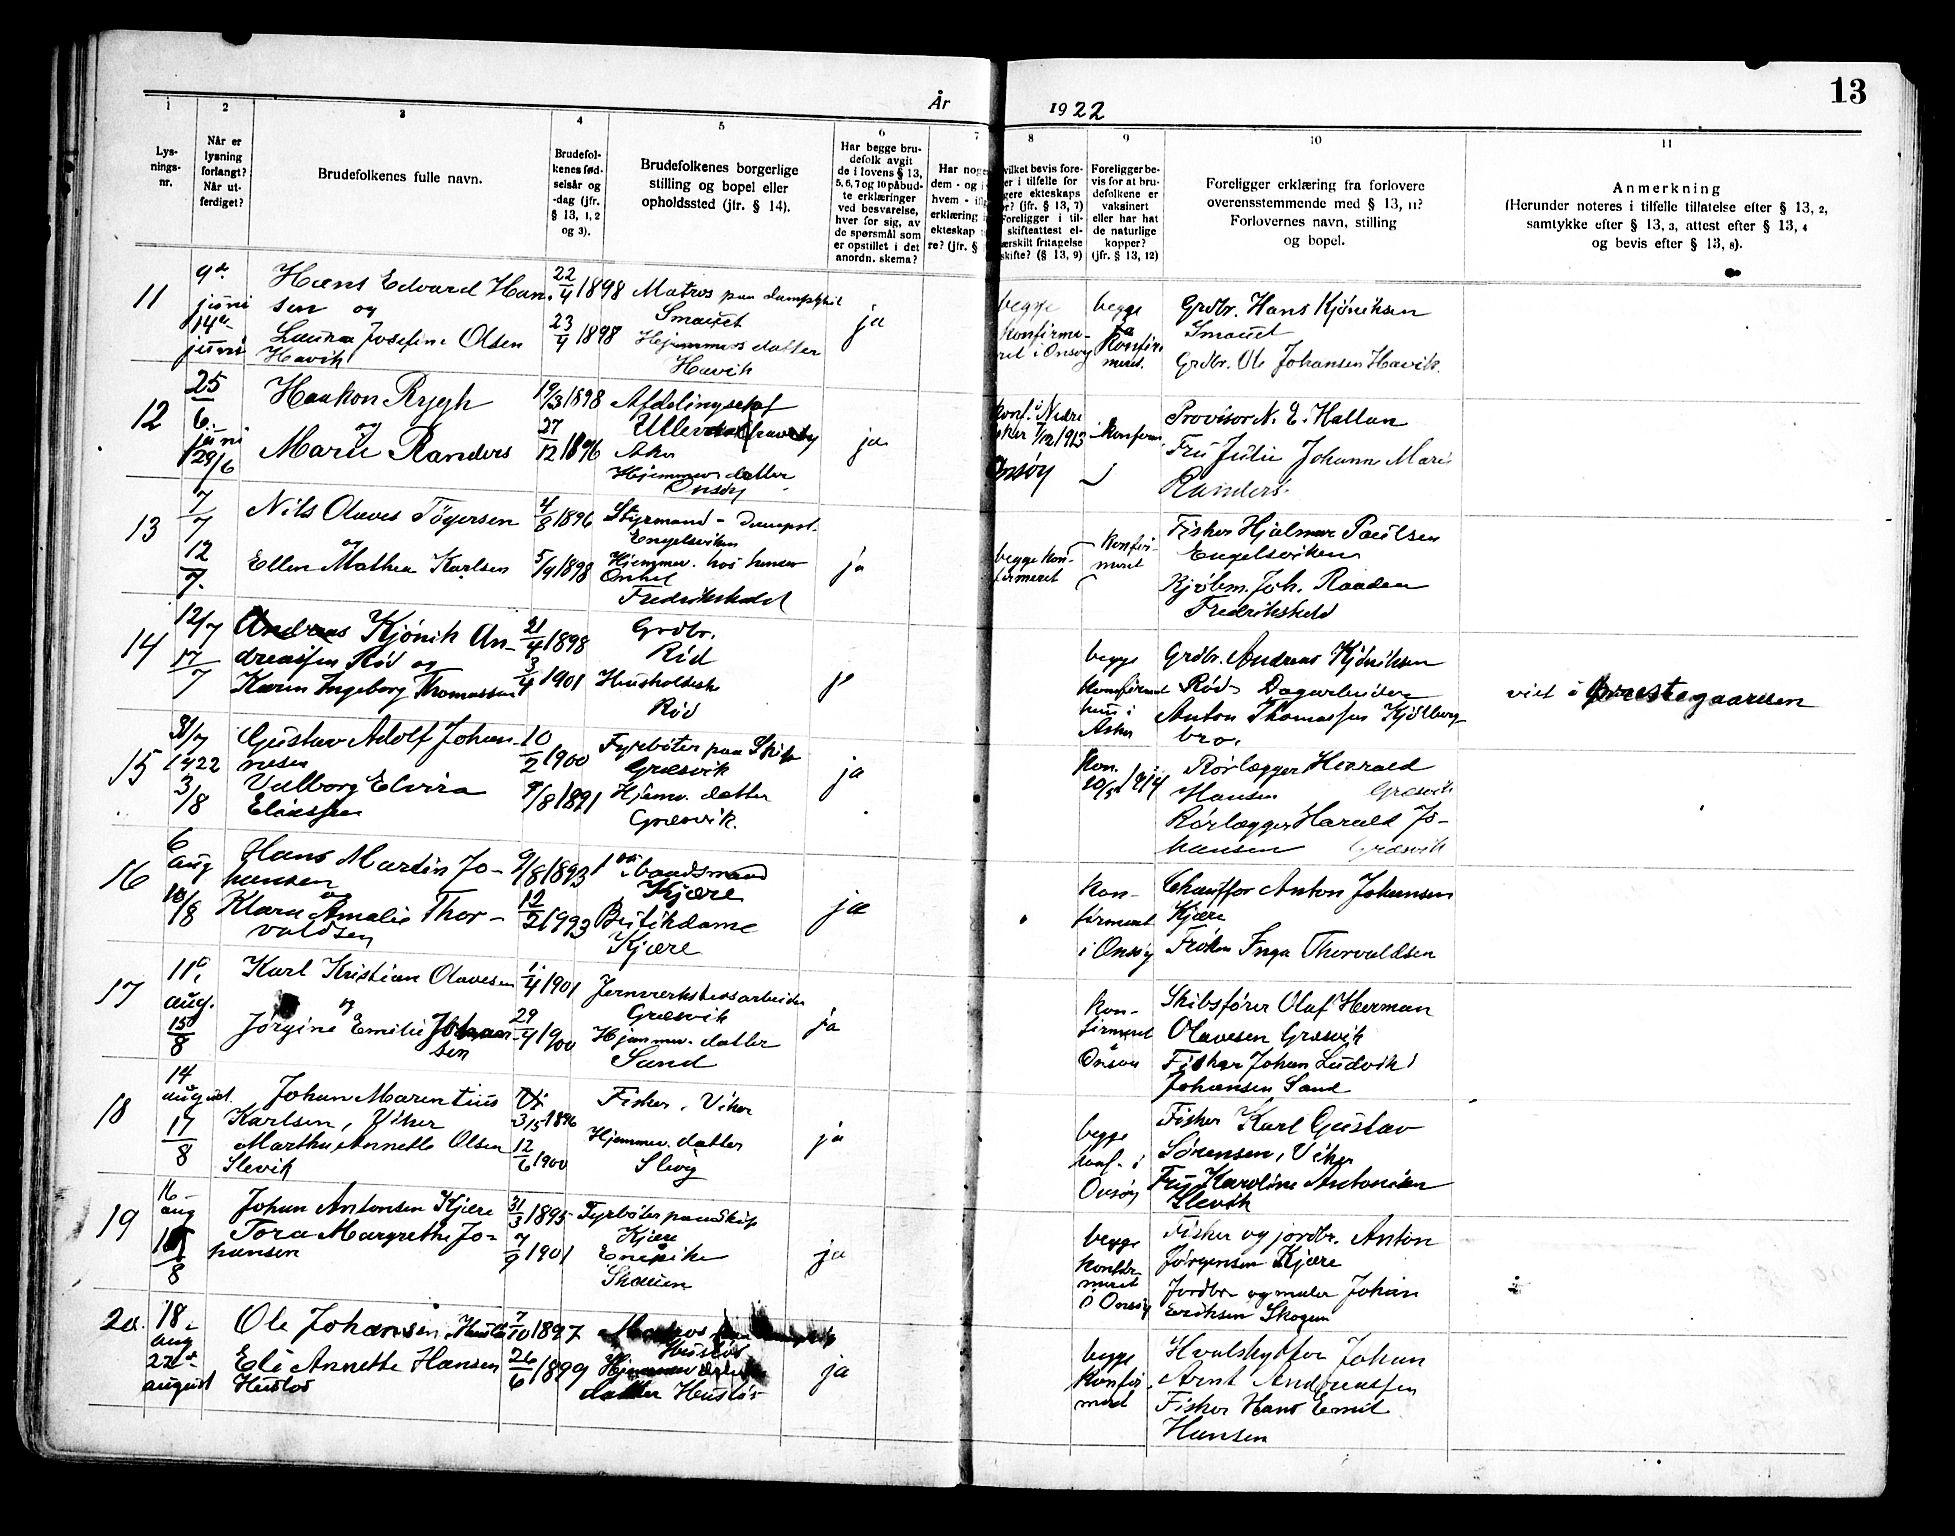 13
År 1922
1
2
3
4
5
6
7
8
9
10
11
Lys-
nings-
nr.
Når er
lysning
forlangt?
Når ut-
ferdiget?
Brudefolkenes fulle navn.
Brudefol-
kenes fød-
selsår og
-dag (jfr.
§ 13, 1, 2
og 3).
Brudefolkenes borgerlige
stilling og bopel eller
opholdssted (jfr. § 14).
Har begge bru-
defolk avgit
de i lovens § 13,
5, 6, 7 og 10 påbud-
te erklæringer
ved besvarelse,
hver for sig, av
de spørsmål som
er opstillet i det
anordn. skema?
Har noge
dem - og i
hvem - ti
erklæring
ekteskap
re? (jfr. §
vilket bevis fore-
er i tilfelle for
gere ekteskaps
or? (jfr. § 13, 7)
Foreligger i til-
skifteattest el-
erskilt fritagelse
skifte? (§ 13, 9)
Foreligger be-
vis for at bru-
defolkene er
vaksinert
eller har hat
de naturlige
kopper?
(jfr. § 13, 12)
Foreligger erklæring fra forlovere
overensstemmende med § 13, 11?
Forlovernes navn, stilling
og bopel.
Anmerkning
(Herunder noteres i tilfelle tillatelse efter § 13, 2,
samtykke efter § 13, 3, attest efter § 13, 4
og bevis efter § 13, 8).
11
9de
juni
14de
juni
Hans Edvard Han-
sen og
Laura Josefine Olsen
Havik
22/4 1898
23/4 1898
Matros paa dampskib
Smauet
Hjemmev datter
Havik
ja
begge
konfirme-
ret i Onsøy
begge
konfir
meret.
Grdbr. Hans Kjöniksen
Smauet
Grdbr. Ole Johansen Havik.
12
25
6.
juni
29/6
Haakon Rygh
og
Marie Randers
19/3 1898
27/12 1896
Aker
Hjemmev datter
Onsøy
ja
konf. i Nedre
Onsøy
konfirm.
Provisor N. E. Hallan
Fru Julie Johanne Marie
Randers.
13
7/7
12/7.
Nils Olaves Tögersen
og
Ellen Mathea Karlsen
4/8 1896
5/9 1898
Styrmand - dampsk.
Engelsviken
Hjemmev. hos hennes
Onkel
Fredrikshald
ja
begge kon-
firmeret
konfir-
meret
Fisker Hjalmar Paulsen
Engelsviken
Kjöbm. Joh. Raaden
Fredrikshald
14
12/7
17/7
Andreas Kjönik An-
dreassen Röd og
Karen Ingeborg Thomassen
21/4 1898
3/4 1901
Grdbr.
Röd
Husholdersk
Röd
ja
begge
konfirmert
hun i
Asker
Grdbr. Andreas Kjöniksen
Röd Dagarbeider
Anton Thomassen Kjölberg
bro.
viet i Prestegaarden
15
31/7
1922
3/8
Gustav Adolf Johan-
nesen
Valborg Elvira
Eliassen
10/2 1900
9/8 1891
Fyrböter paa Skip
Græsvik
Hjemv. datter
Græsvik.
ja
Kon.
10/5 1914
Rörlægger Harald
Hansen Græsvik
Rörlægger Harald Jo-
hansen Græsvik
16
6
aug
10/8
Hans Martin Jo-
hansen
og
Klara Amalie Thor-
valdsen
9/8 1893
baadsmand
Kjære
Butikdame
Kjære
ja
kon-
firmeret
i Onsøy
Chauffør Anton Johansen
Kjære
Frøken Inga Thorvaldsen
17
11te
aug.
15/8
Karl Kristian Olavesen
og
Jørgine Emilie Johan-
sen
1/4 1901
29/4 1900
Jernverkstedsarbeider
Græsvik
Hjemmev. datter
Sand
ja
kon-
firmeret
i
Onsøy
Skibsfører Olaf Herman
Olavesen Græsvik
Fisker Johan Ludvik
Johansen Sand
18
14
august
17/8
Johan Marentius
Karlsen, Viker
Martha Annette Olsen
Slevik
3/5 1896
12/6 1900
Fisker, Viker
Hjemmev. datter
Slevig
ja
begge
konf. i
Onsøy
Fisker Karl Gustav
Sørensen, Viker
Fru Karoline Antonisen
Slevik
19
16
aug
18/8
Johan Antonsen Kjære
Tora Margrethe Jo-
hansen
31/3 1895
7/9 1901
Fyrböter paa skip
Kjære
Enepike
Skauen
ja
begge
konfir-
meret
i Onsøy
Fisker og jordbr. Anton
Jørgensen Kjære
Jordbr og maler Johan
Eriksen Skogen
20.
18.
aug
22de
august
Ole Johansen Husløs
Eli Annette Hansen
Husløs
7/10 1897
26/6 1899
Matros
Husløs
Hjemmev
datter Husløs
ja
begge
konfir
meret
Hvalskytter Johan
Arnt Andreassen
Fisker Hans Emil
Hansen